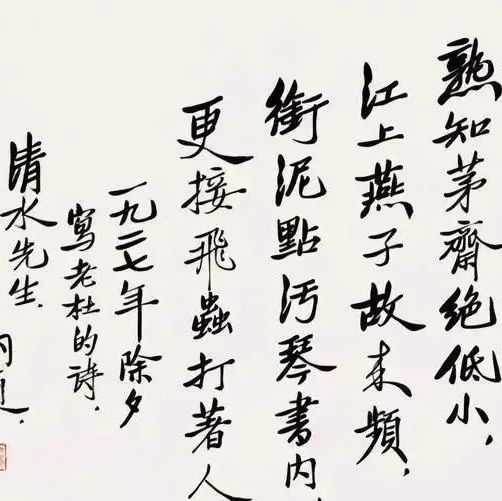 熟知茅齋絶低小，
江上燕子故來頻，
銜泥點汚琴書内，
更接飛蟲打著人
一九二七年除夕
寫老杜的詩．
清水先生．